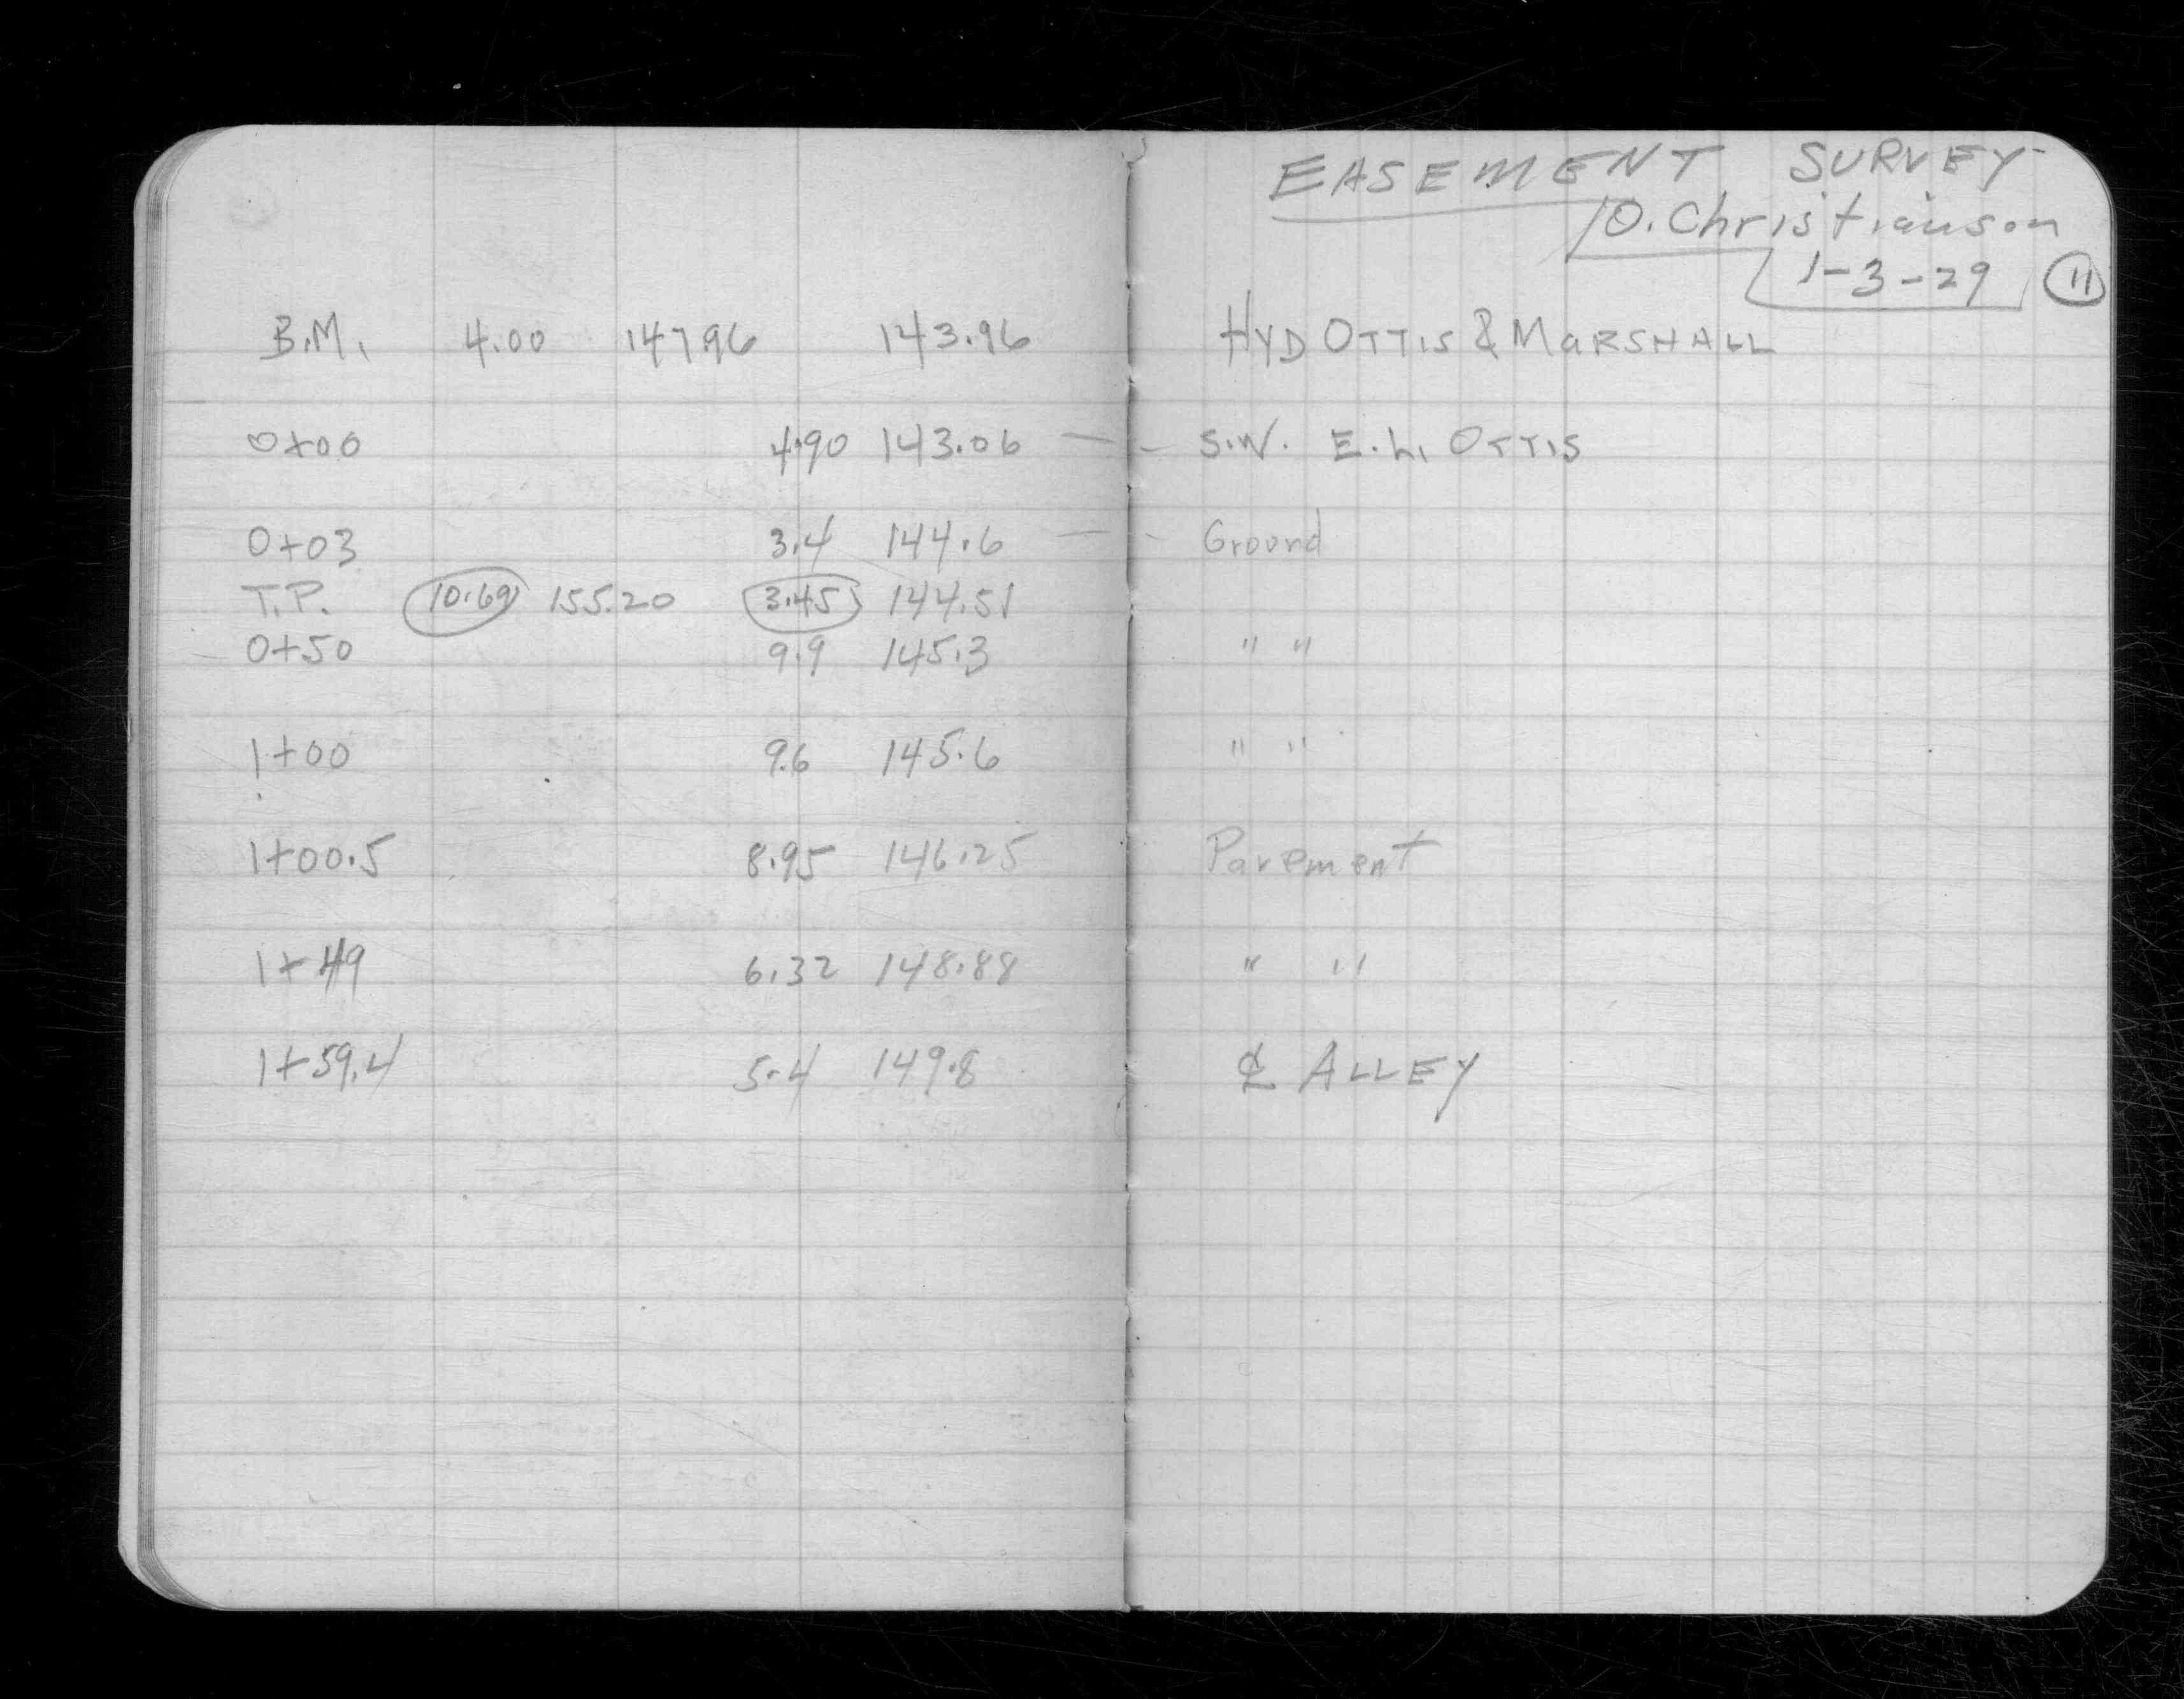 EASEMENT SURVEY
O. Christianson
1-3-29 11
B.M. 4.00 147.96 143.96 HYD OTTIS & MARSHALL
0+00 4.90 143.06 — - S.W. E.L. OTTIS
0+03 3.4 144.6 — - Ground
T.P. 10.69 155.20 3.45 144.51
0+50 9.9 145.3 " "
1+00 9.6 145.6 " "
1+00.5 8.95 146.25 Pavement
1+49 6.32 148.88 " "
1+59.4 5.4 149.8 ℄ ALLEY